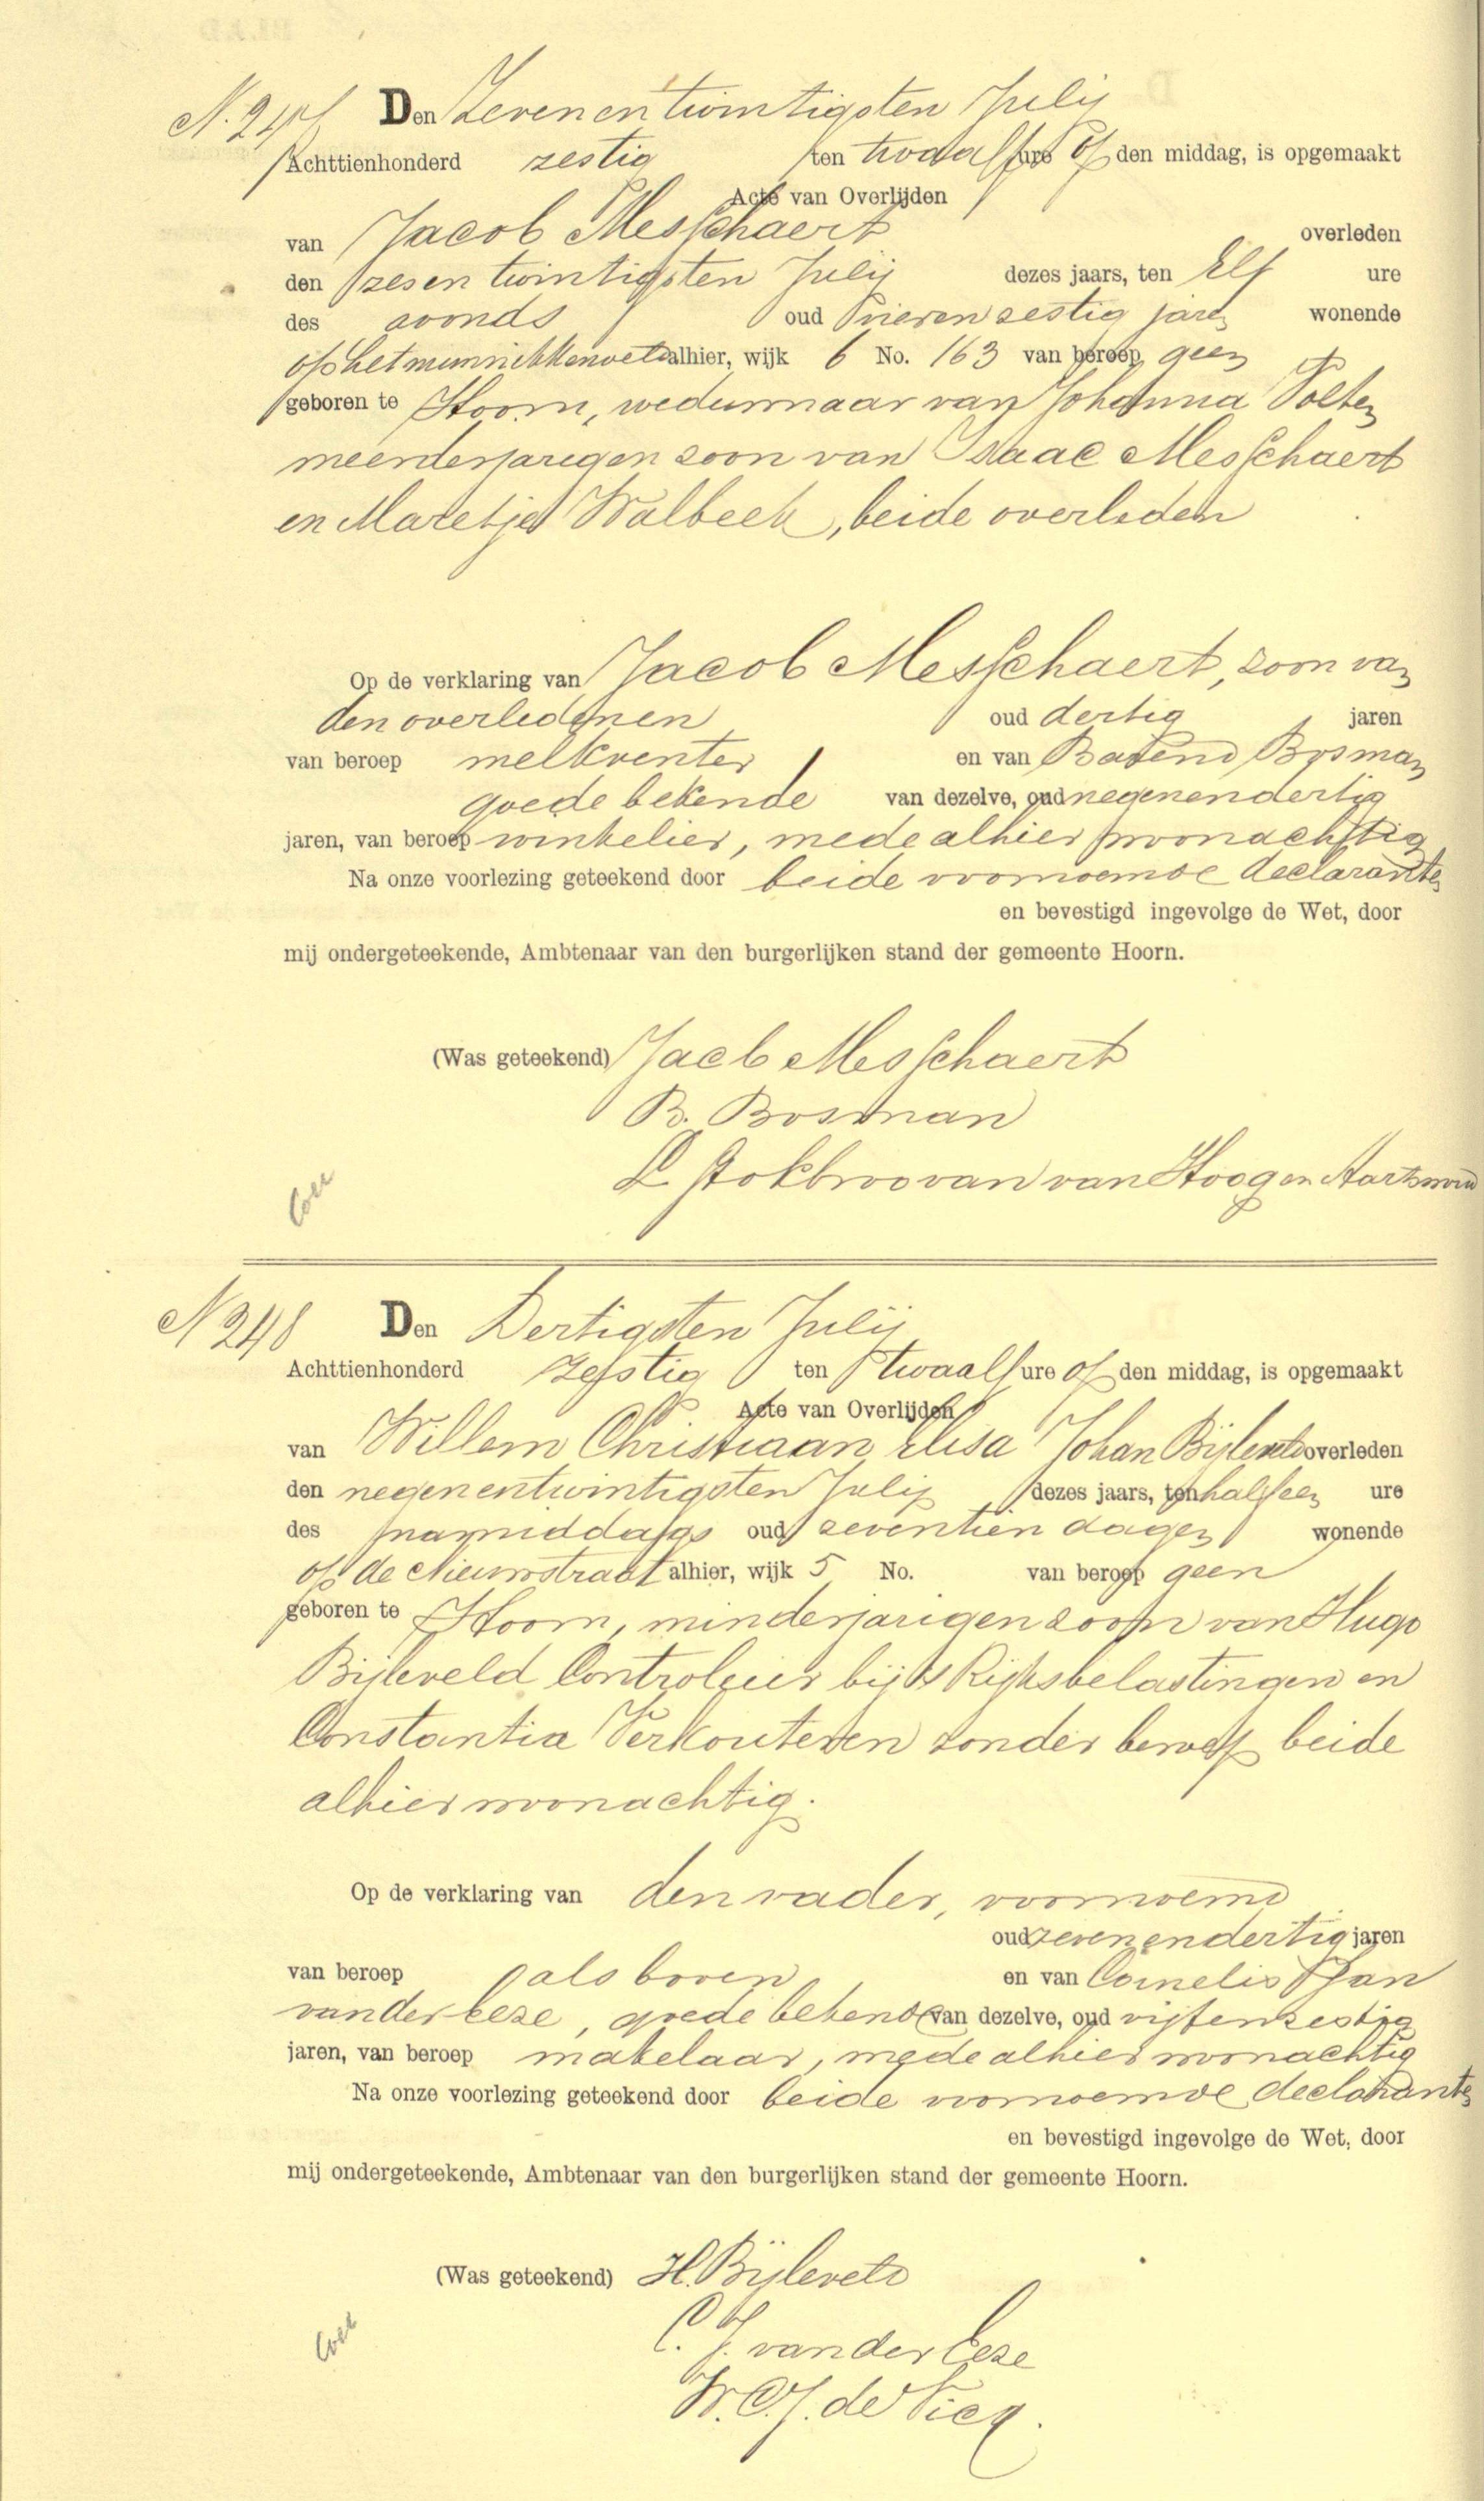 N. 247 Den Zevenentwintigsten Julij
Achttienhonderd zestig ten twaalf ure op den middag, is opgemaakt
Acte van Overlijden
van Jacob Messchaert overleden
den zesentwintigsten Julij dezes jaars, ten Elf ure
des avonds oud vierenzestig jaren wonende
op het munnikkenveld alhier, wijk 6 No. 163 van beroep geen
geboren te Hoorn, weduwnaar van Johanna Polten
meerderjarigen zoon van Isaac Messchaert
en Maretje Walbeek, beide overleden
Op de verklaring van Jacob Messchaert, zoon van
den overledenen oud dertig jaren
van beroep melkventer en van Barend Bosman
goede bekende van dezelve, oud negenendertig
jaren, van beroep winkelier, mede alhier woonachtig
Na onze voorlezing geteekend door beide voornoemde declaranten
en bevestigd ingevolge de Wet, door
mij ondergeteekende, Ambtenaar van den burgerlijken stand der gemeente Hoorn.
(Was geteekend) Jacb Messchaert
B. Bosman
L Stokbroo van van Hoog en Aartswoud
N 248 Den Dertigsten Julij
Achttienhonderd Zestig ten twaalf ure op den middag, is opgemaakt
Acte van Overlijden
van Willem Christiaan Elisa Johan Bijleveld overleden
den negenentwintigsten Julij dezes jaars, ten half een ure
des namiddags oud zeventien dagen wonende
op de Nieuwstraat alhier, wijk 5 No. van beroep geen
geboren te Hoorn, minderjarigen zoon van Hugo
Bijleveld Controleur bij 's Rijksbelastingen en
Constantia Verkouteren zonder beroep beide
alhier woonachtig.
Op de verklaring van den vader, voornoemd
oud zevenendertig jaren
van beroep als boven en van Cornelis Jan
van der Ceze, goede bekende van dezelve, oud vijfenzestig
jaren, van beroep makelaar, mede alhier woonachtig
Na onze voorlezing geteekend door beide voornoemde declaranten
en bevestigd ingevolge de Wet, door
mij ondergeteekende, Ambtenaar van den burgerlijken stand der gemeente Hoorn.
(Was geteekend) H. Bijleveld
C. J. van der Ceze
W. C. J. de Vicq.